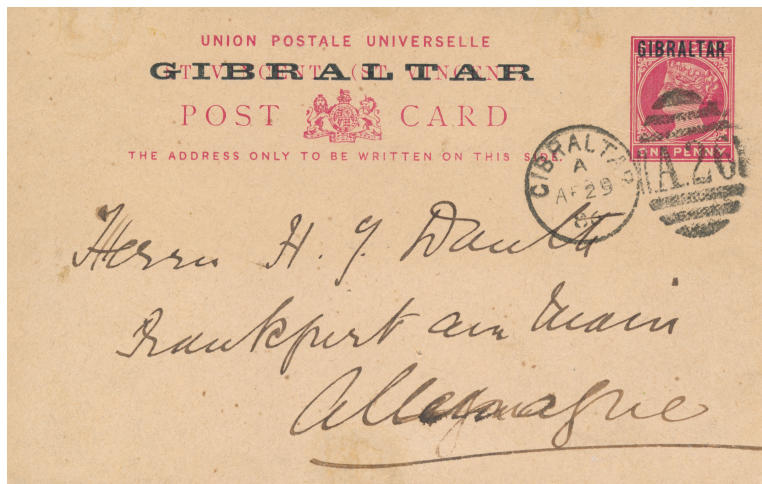 UNION POSTALE UNIVERSELLE
GIBRALTAR
POST CARD
THE ADDRESS ONLY TO BE WRITTEN ON THIS SIDE.
GIBRALTAR
ONE PENNY
GIBRALTAR
A
AP 29
86
A26
Herrn H. J. Dauth
Frankfurt am Main
Allemagne